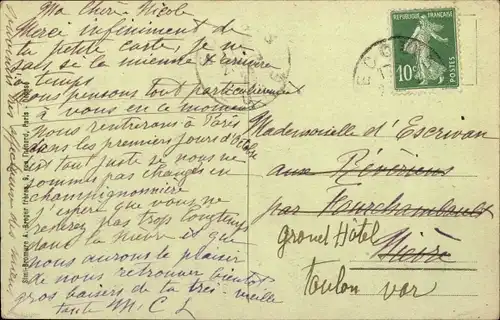 Ma chère Nicole
Merci infiniment de
ta petite carte, je ne
sais si la mienne arrivera
à temps
nous pensons tout particulièrement
à vous en ce moment
nous rentrerons à Paris
dans les premiers jours d'octobre
est tout juste si nous ne
sommes pas changés en
champignonnière
J'espère que vous ne
resterez plus trop longtemps
dans la Nièvre et que
nous aurons le plaisir
de nous retrouver bientôt
gros baisers de ta très vieille
tante M.C.L
Simi-Bromure A. Breger frères, 9, rue Thénard, Paris
RÉPUBLIQUE FRANÇAISE
10c
POSTES
Mademoiselle d'Escrivan
aux Révériens
par Fourchambault
Nièvre
Grand Hôtel
Toulon Var